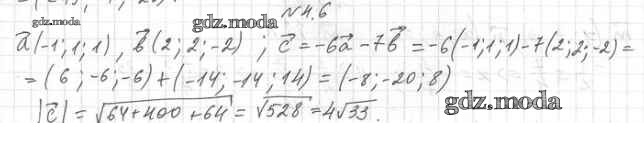 №4.6
gdz.moda
gdz.moda
a⃗(-1;1;1), b⃗(2;2;-2); c⃗=-6a⃗-7b⃗=-6(-1;1;1)-7(2;2;-2)=
=(6;-6;-6)+(-14;-14;14)=(-8;-20;8)
|c⃗|=√(64+400+64)=√528=4√33.
gdz.moda